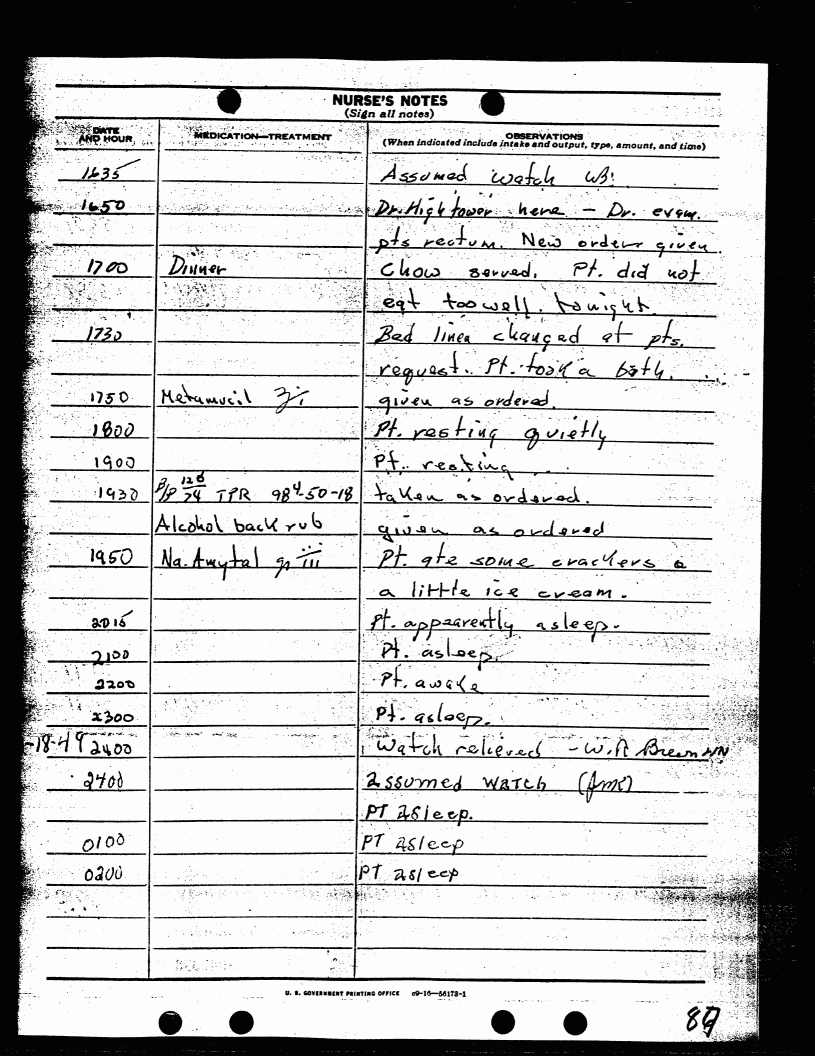 NURSE'S NOTES
(Sign all notes)
DATE AND HOUR MEDICATION—TREATMENT OBSERVATIONS
(When indicated include intake and output, type, amount, and time)
1635 Assumed watch WB.
1650 Dr. Hightower here - Dr. exam.
pts rectum. New orders given.
1700 Dinner Chow served. Pt. did not
eat too well tonight.
1730 Bed linen changed at pts.
request. Pt. took a bath.
1750 Metamucil ʒi given as ordered.
1800 Pt. resting quietly
1900 Pt. resting
1930 B/P 126/74 TPR 98⁴-50-18 taken as ordered.
Alcohol back rub given as ordered
1950 Na. Amytal gr iii Pt. ate some crackers &
a little ice cream.
2015 Pt. appearently asleep.
2100 Pt. asleep.
2200 Pt. awake
2300 Pt. asleep.
-18-49 2400 Watch relieved - W.R Brown HN
2400 assumed watch
PT asleep.
0100 PT asleep
0200 PT asleep
U. S. GOVERNMENT PRINTING OFFICE c9-16—56173-1